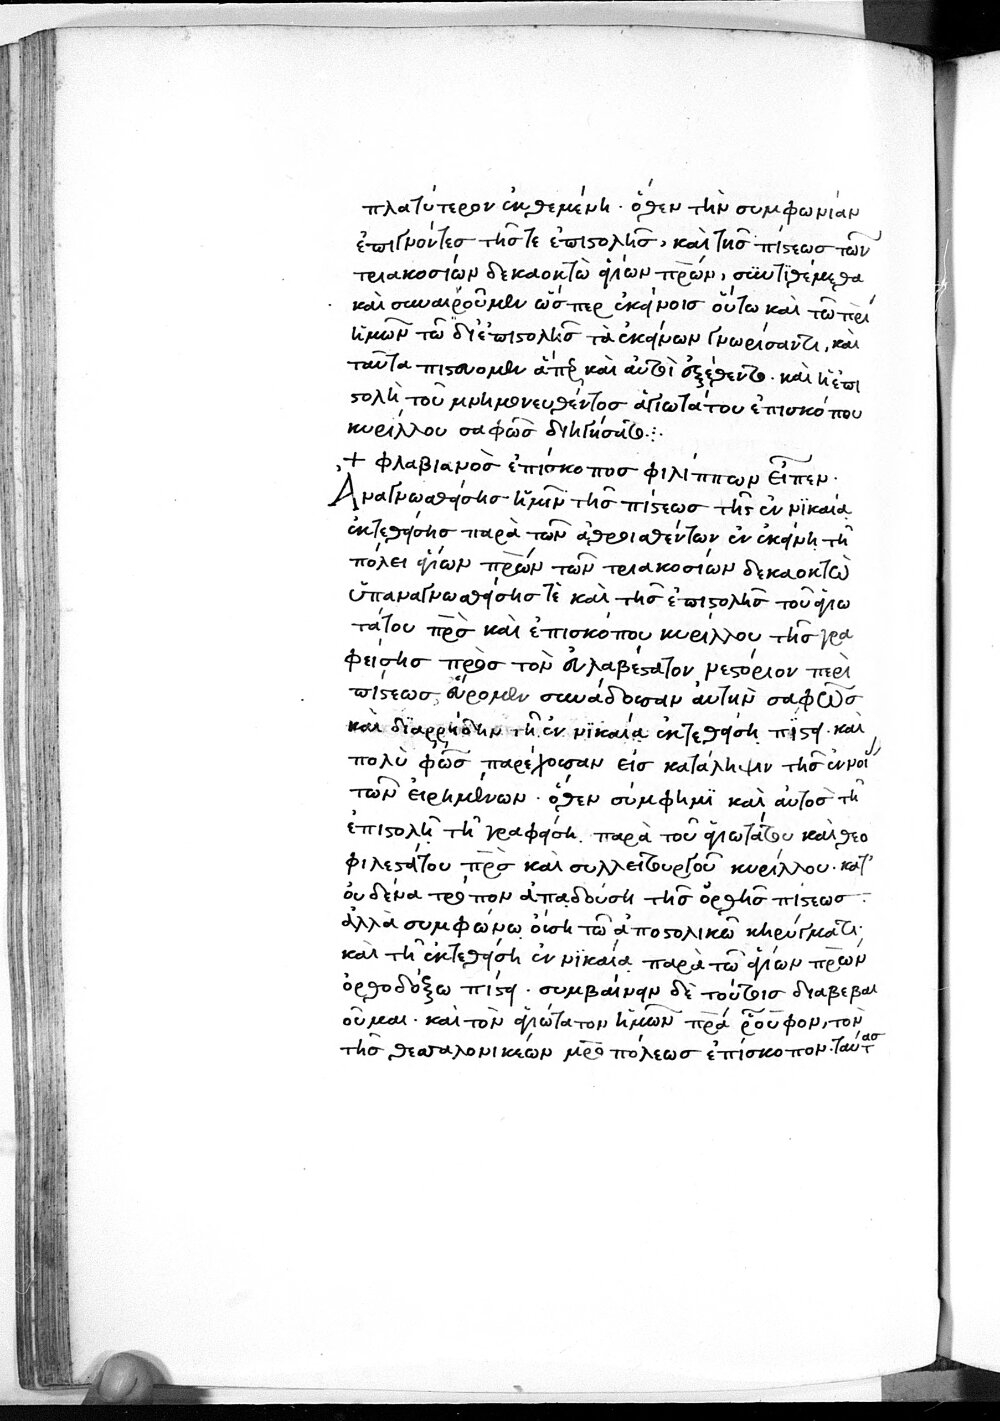 πλατύτερον ἐκθεμένη · ὅθεν τὴν συμφωνίαν
ἐπιγνόντες τῆς τε ἐπιστολῆς, καὶ τῆς πίστεως τῶν
τριακοσίων δεκαοκτὼ ἁγίων πρ̅ων, συντιθέμεθα
καὶ συναιροῦμεν ὥσπερ ἐκείνοις οὕτω καὶ τῶ πρὶ
ἡμῶν τῶ δι' ἐπιστολῆς τὰ ἐκείνων γνωρίσαντι, καὶ
ταῦτα πιστεύομεν ἅπερ καὶ αὐτοὶ ἐξέθεντο · καὶ ἡ ἐπι
στολὴ τοῦ μνημονευθέντος ἁγιωτάτου ἐπισκόπου
κυρίλλου σαφῶς διηγήσατο ⁘
+ φλαβιανὸς ἐπίσκοπος φιλίππων εἶπεν ·
Ἀναγνωσθείσης ἡμῖν τῆς πίστεως τῆς ἐν νϊκαία
ἐκτεθείσης παρὰ τῶν ἀθροισθέντων ἐν ἐκείνη τῆ
πόλει ἁγίων πρ̅ων τῶν τριακοσίων δεκαοκτὼ
ὑπαναγνωσθείσης τὲ καὶ τῆς ἐπιστολῆς τοῦ ἁγιω
τάτου πρ̅ς καὶ ἐπισκόπου κυρίλλου τῆς γρα
φείσης πρὸς τὸν εὐλαβέστατον νεστόριον περὶ
πίστεως, εὕρομεν συνάδουσαν αὐτὴν σαφῶς
καὶ διαρρήδην τῆ ἐν νϊκαία ἐκτεθείση πίστει · καὶ
πολὺ φῶς παρέχουσαν εἰς κατάληψιν τῆς ἐννοί
τῶν εἰρημένων · ὅθεν σύμφημϊ καὶ αὐτὸς τῆ
ἐπιστολῆ τῆ γραφείση παρὰ τοῦ ἁγιωτάτου καὶ θεο
φιλεστάτου πρ̅ς καὶ συλλειτουργοῦ κυρίλλου · κατ'
οὐδένα τρόπον ἀπαδούση τῆς ὀρθῆς πίστεως
ἀλλὰ συμφώνω οὔση τῶ ἀποστολικῶ κηρύγματι·
καὶ τῆ ἐκτεθείση ἐν νϊκαία παρὰ τῶ ἁγίων πρ̅ων
ὀρθοδόξω πίστει · συμβαίνειν δὲ τούτοις διαβεβαι
οῦμαι · καὶ τὸν ἁγιώτατον ἡμῶν πρ̅α ῥοῦφον, τὸν
τῆς θεσσαλονικέων μρ̅ο πόλεως ἐπίσκοπον · ταύτας